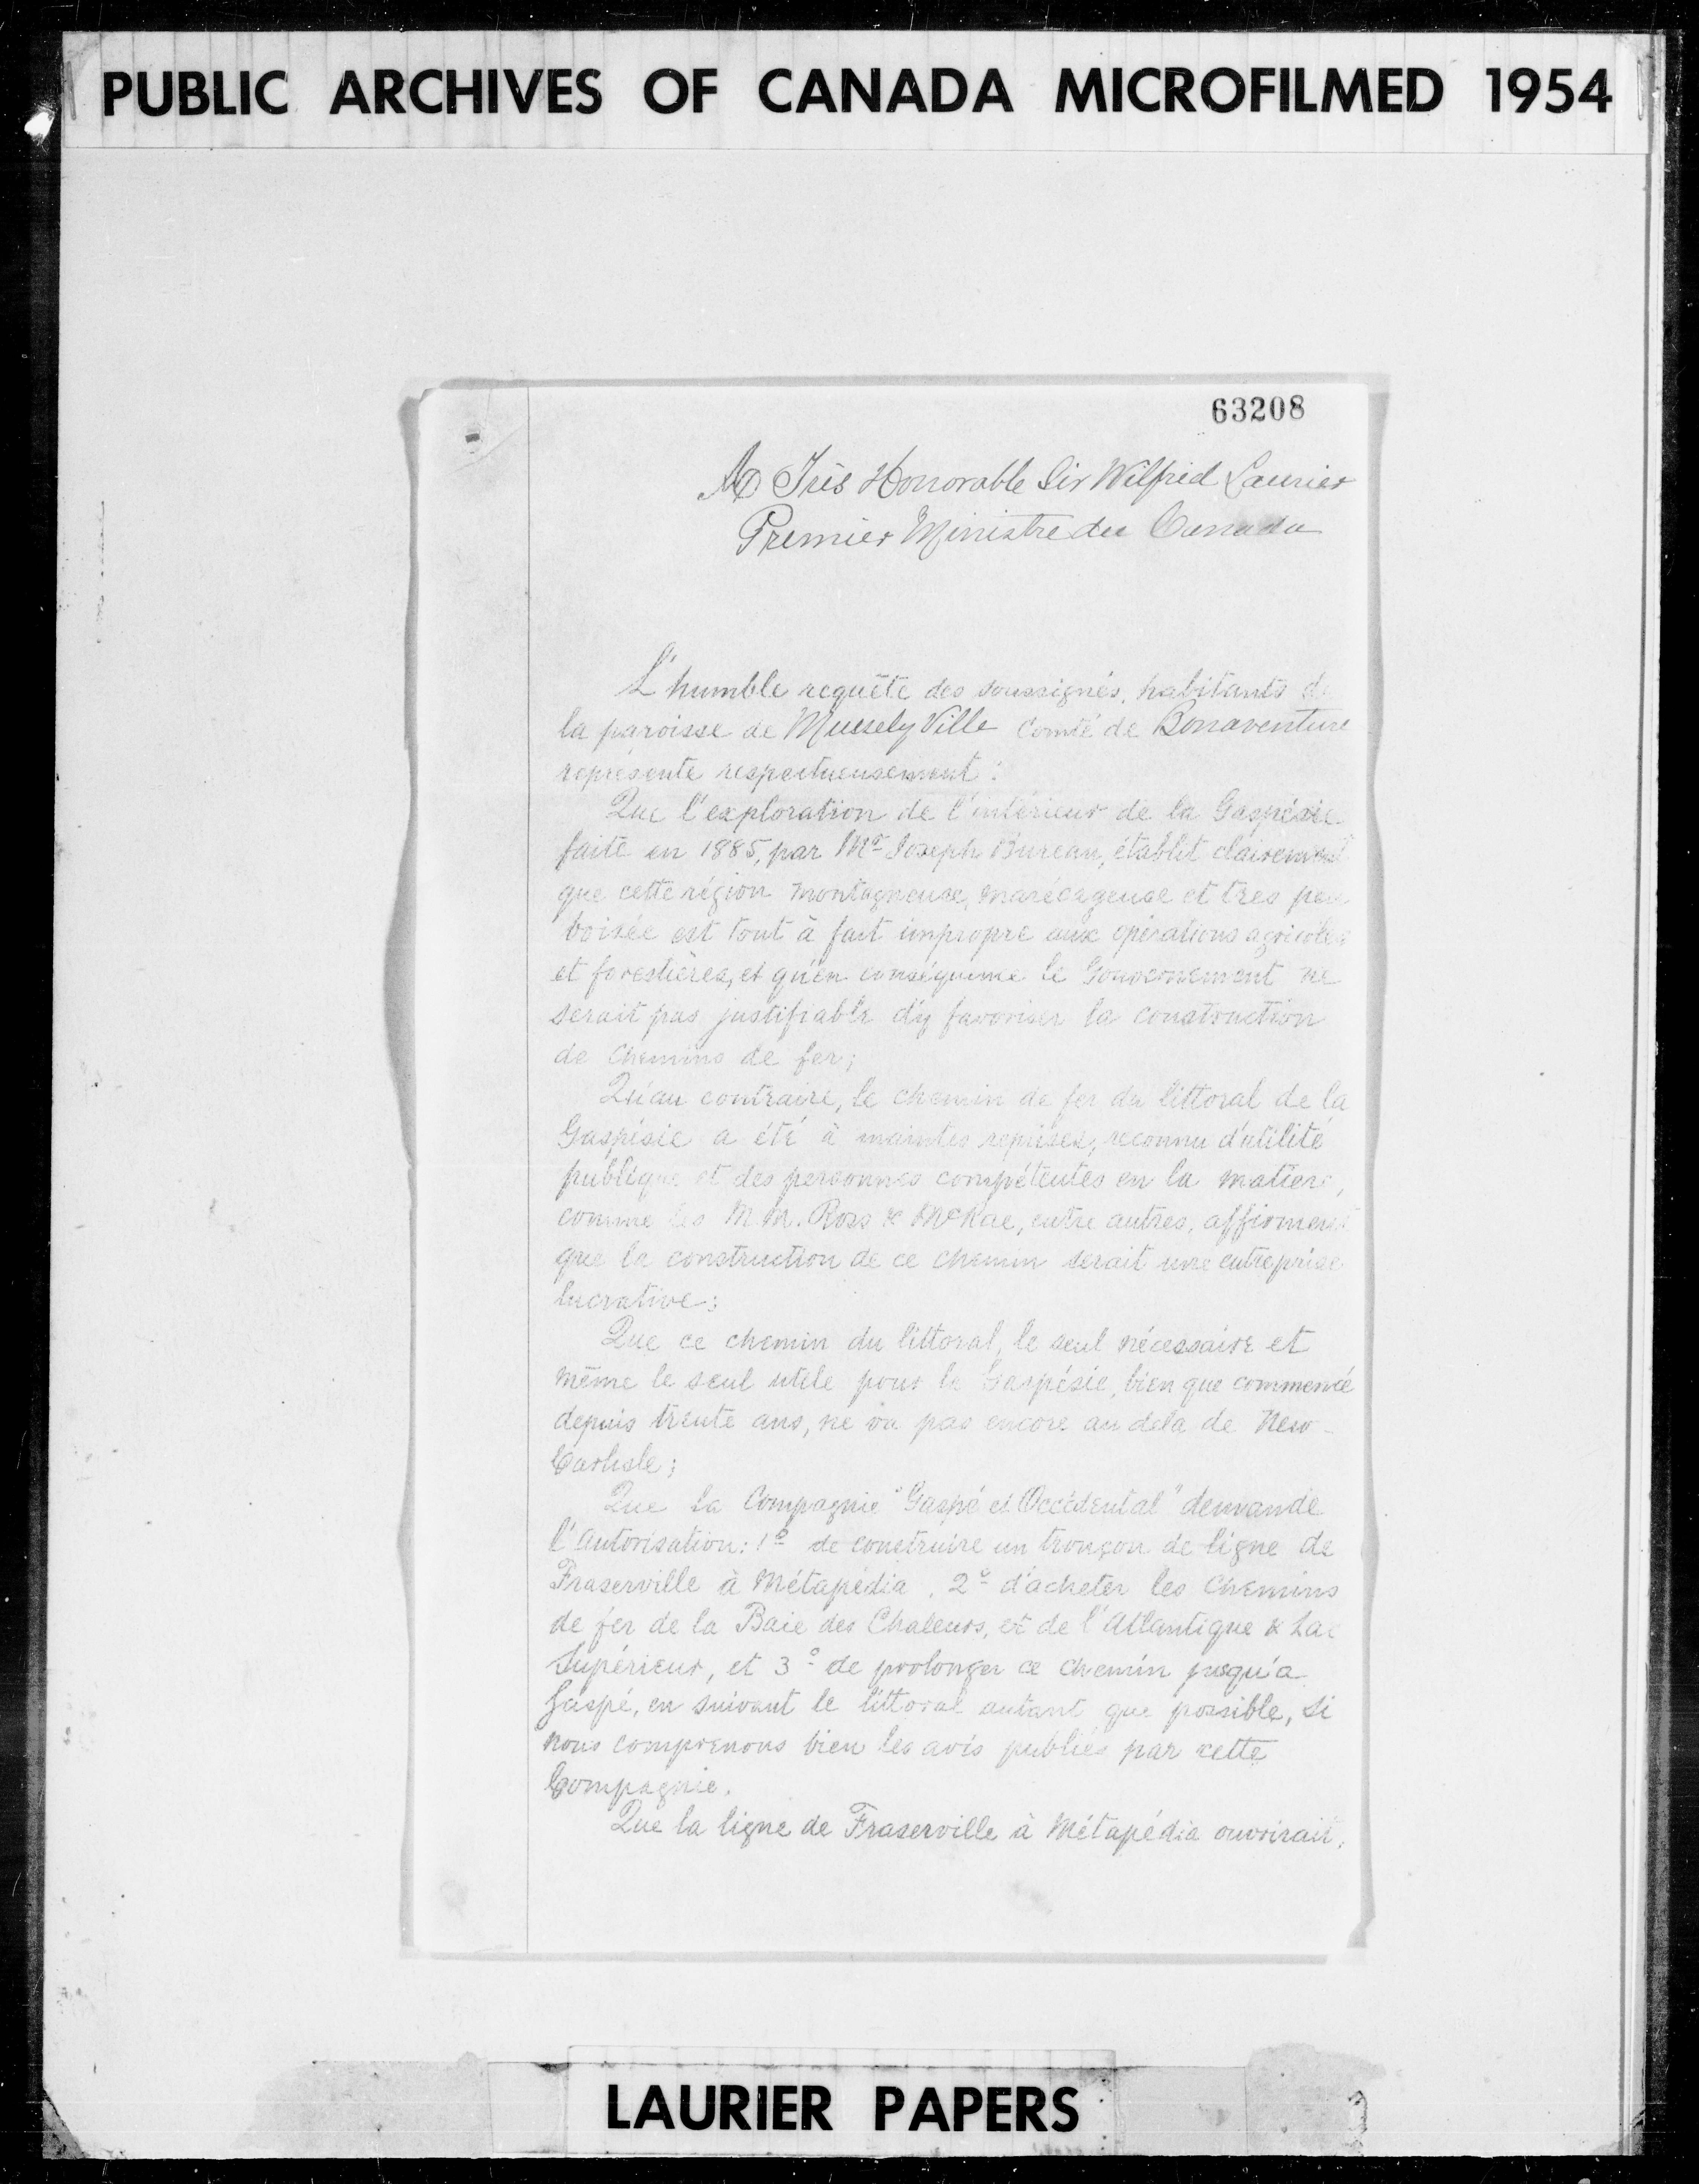 PUBLIC ARCHIVES OF CANADA MICROFILMED 1954
63208
Très Honorable Sir Wilfrid Laurier
Premier Ministre du Canada
L'humble requête des soussignés, habitants de
la paroisse de Mussely Ville Comté de Bonaventure
représente respectueusement :
Que l'exploration de l'intérieur de la Gaspésie
faite en 1885, par Mr Joseph Bureau, établit clairement
que cette région montagneuse, marécageuse et tres peu
boisée est tout à fait impropre aux opérations agricoles
et forestières, et qu'en conséquence le Gouvernement ne
serait pas justifiable d'y favoriser la construction
de Chemins de fer;
Qu'au contraire, le chemin de fer du littoral de la
Gaspésie a été à maintes reprises, reconnu d'utilité
publique et des personnes compétentes en la matière,
comme les M.M. Ross & McRae, entre autres, affirment
que la construction de ce chemin serait une entreprise
lucrative;
Que ce chemin du littoral, le seul nécessaire et
même le seul utile pour la Gaspésie, bien que commencé
depuis trente ans, ne va pas encore au dela de New-
Carlisle;
Que la Compagnie "Gaspé et Occidental" demande
l'autorisation: 1º de construire un tronçon de ligne de
Fraserville à Métapédia, 2º d'acheter les Chemins
de fer de la Baie des Chaleurs, et de l'Atlantique & Lac
Supérieur, et 3º de prolonger ce chemin jusqu'a
Gaspé, en suivant le littoral autant que possible, si
nous comprenons bien les avis publiés par cette
Compagnie.
Que la ligne de Fraserville à Métapédia ouvrirait,
LAURIER PAPERS